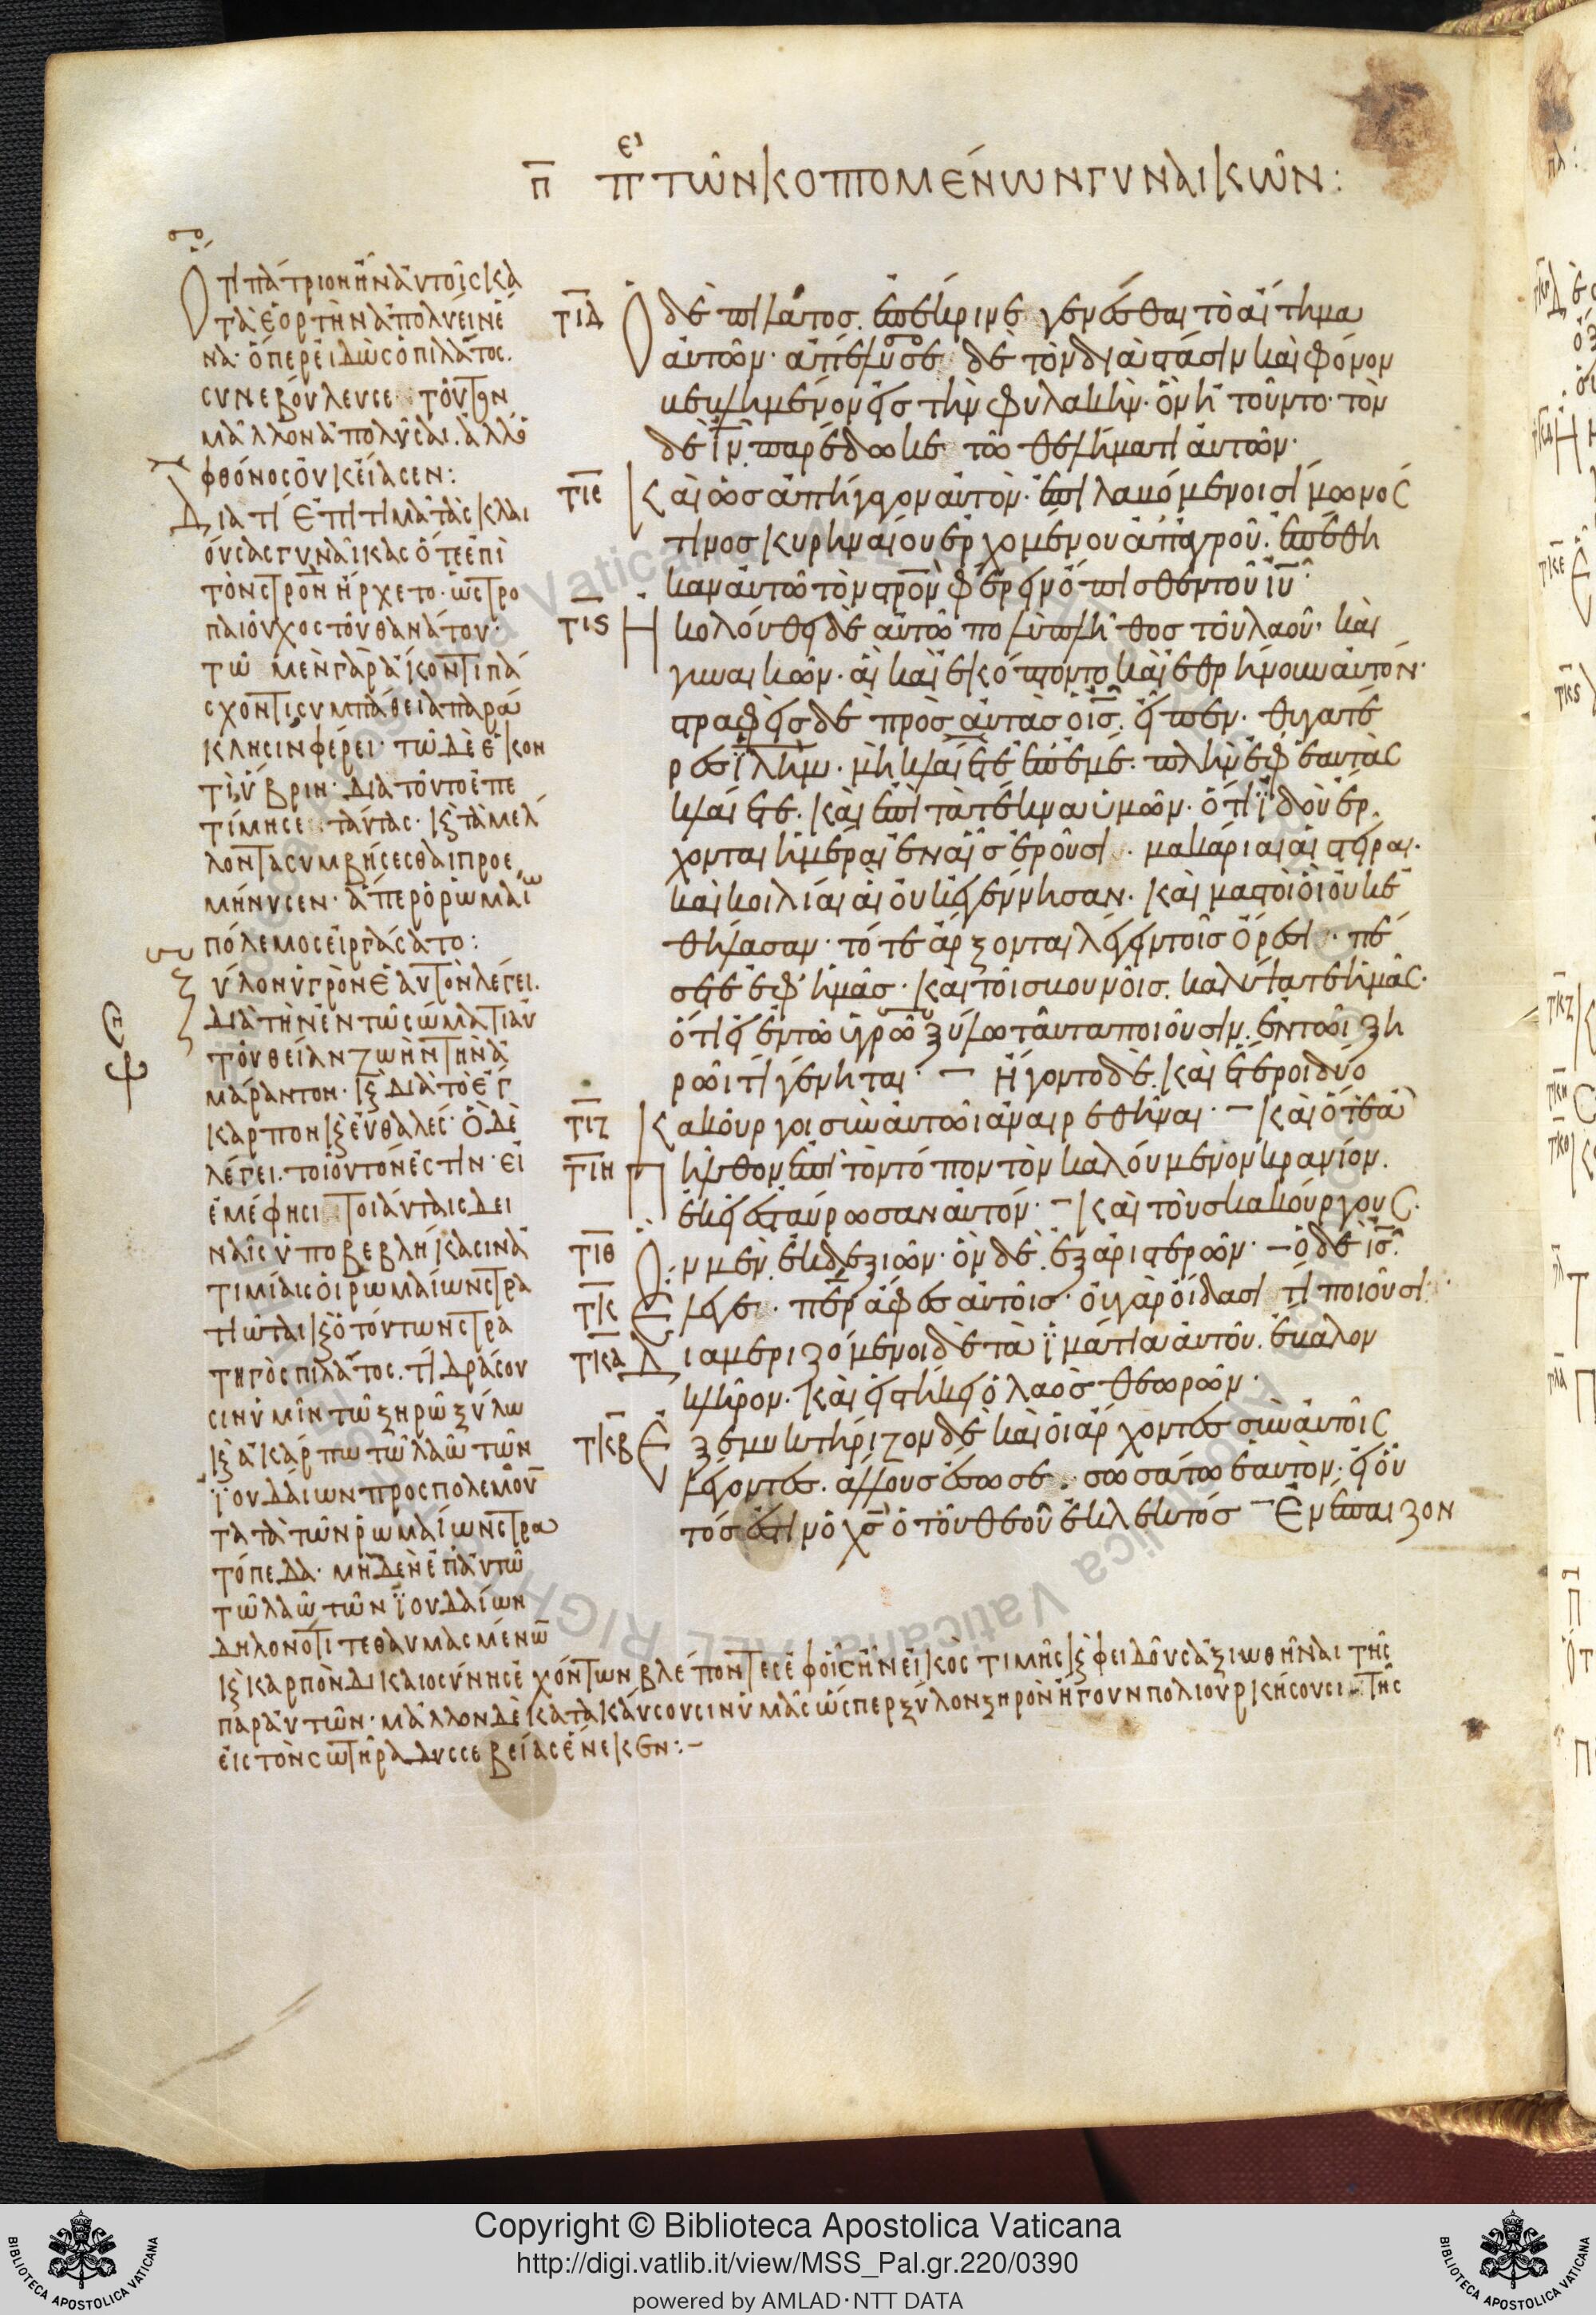 π̅ πει τῶν κοπτομένων γυναικῶν:
Ὅτι πάτριον ἦν αὐτοῖς κα
τὰ ἑορτὴν ἀπολύειν ἕ
να· ὅπερ εἰδὼς ὁ πιλᾶτος.
συνεβούλευσε τοῦτον
μᾶλλον ἀπολῦσαι. ἀλλ' ὁ
φθόνος οὐκ εἴασεν:
Διατί ἐπιτιμᾶ τὰς κλαι
ούσας γυναῖκας ὅτε ἐπὶ
τὸν στ̅ρο̅ν ἤρχετο· ὡς τρο
παιοῦχος τοῦ θανάτου·
τῶ μὲν γὰρ ἄκοντι πά
σχοντι συμπάθεια παρά
κλησιν φέρει· τῶ δὲ ἑκόν
τι, ὕβριν· διατοῦτο ἐπε
τίμησε ταύτας· κ τὰ μέλ
λοντα συμβήσεσθαι προε
μήνυσεν· ἅπερ ὁ ῥωμαίω
πόλεμος εἰργάσατο:
ξύλον ὑγρὸν ἑαυτὸν λέγει.
διὰ τὴν ἐν τῶ σώματι αὐ
τοῦ θείαν ζωὴν τὴν ἀ
μάραντον· κ διὰ τὸ ἔγ
καρπον κ εὐθαλές· ὃ δὲ
λέγει. τοιοῦτόν ἐστιν· εἰ
ἐμέ φησι τοιαύταις δει
ναῖς ὑποβεβλήκασιν ἀ
τιμίαις οἱ ῥωμαίων στρα
τιῶται κ ὁ τούτων στρα
τηγὸς πιλᾶτος. τί δράσου
σιν ὑμῖν τῶ ξηρῶ ξύλω
κ ἀκάρπω τῶ λαῶ τῶν
ἰουδαίων προσπολεμοῦν
τα τὰ τῶν ῥωμαίων στρα
τόπεδα· μηδὲν ἐπ' αὐτῶ
τῶ λαῶ τῶν ἰουδαίων
δηλονότι τεθαυμασμένω
κ καρπὸν δικαιοσύνης ἐχόντων βλέποντες ἐφ' οἷς ἦν εἰκὸς τιμῆς κ φειδοῦς ἀξιωθῆναι τῆς
παρ' αὐτῶν· μᾶλλον δὲ κατακαύσουσιν ὑμᾶς ὥσπερ ξύλον ξηρὸν ἤγουν πολιορκήσουσι τῆς
εἰς τὸν σωτῆρα δυσσεβείας ἕνεκεν:–
τιδ Ὁ δὲ πιλᾶτος. ἐπέκρινε γενέσθαι τὸ αἴτημα
αὐτῶν· ἀπέλυσε δὲ τὸν διὰ στάσιν καὶ φόνον
βεβλημένον εἰς τὴν φυλακὴν· ὃν ἠτοῦντο· τὸν
δὲ ι̅ν̅ παρέδωκε τῶ θελήματι αὐτῶν·
τιε Καὶ ὡς ἀπήγαγον αὐτὸν· ἐπιλαβόμενοι σίμωνός
τινος κυρηναίου ἐρχομένου ἀπ' ἀγροῦ. ἐπέθη
καν αὐτῶ τὸν στ̅ρο̅ν φέρειν ὄπισθεν τοῦ ι̅υ̅·
τις Ἠκολούθει δὲ αὐτῶ πολὺ πλῆθος τοῦ λαοῦ· καὶ
γυναικῶν· αἳ καὶ ἐκόπτοντο καὶ ἐθρήνουν αὐτόν·
στραφεὶς δὲ πρὸς αὐτὰς ὁ ι̅ς̅. εἶπεν· θυγατέ
ρες ι̅λ̅η̅μ̅· μὴ κλαίετε ἐπ' ἐμέ· πλὴν ἐφ' ἑαυτὰς
κλαίετε. καὶ ἐπὶ τὰ τέκνα ὑμῶν· ὅτι ἰδοὺ ἔρ
χονται ἡμέραι ἐν αἷς ἐροῦσι· μακάριαι αἱ στεῖραι·
καὶ κοιλίαι αἳ οὐκ ἐγέννησαν· καὶ μαστοὶ οἳ οὐκ ἐ
θήλασαν· τότε ἄρξονται λέγειν τοῖς ὄρεσι· πέ
σετε ἐφ' ἡμᾶς· καὶ τοῖς βουνοῖς. καλύψατε ἡμᾶς·
ὅτι εἰ ἐν τῶ ὑγρῶ ξύλω ταῦτα ποιοῦσιν. ἐν τῶι ξη
ρῶι τί γένηται· – ἤγοντο δὲ. καὶ ἕτεροι δύο
τιζ Κακοῦργοι σὺν αὐτῶι ἀναιρεθῆναι· – καὶ ὅτε ἀ
τιη πῆλθον ἐπὶ τὸν τόπον τὸν καλούμενον κρανίον.
ἐκεῖ ἐσταύρωσαν αὐτόν· – καὶ τοὺς κακούργους·
τιθ Ὃν μὲν. ἐκ δεξιῶν· ὃν δὲ. ἐξ ἀριστερῶν· – ὁ δὲ ι̅ς̅·
τκ Ἔλεγε· π̅ε̅ρ̅ ἄφες αὐτοῖς· οὐ γὰρ οἴδασι τί ποιοῦσι·
τκα Διαμεριζόμενοι δὲ τὰ ἱμάτια αὐτοῦ. ἔβαλον
κλῆρον. καὶ εἱστήκει ὁ λαὸς θεωρῶν·
τκβ Ἐξεμυκτήριζον δὲ καὶ οἱ ἄρχοντες σὺν αὐτοῖς
λέγοντες. ἄλλους ἔσωσε· σωσάτω ἑαυτὸν· εἰ οὗ
τός ἐστιν ὁ χ̅ς̅ ὁ τοῦ θεοῦ ἐκλεκτός – Ἐνέπαιζον
Copyright © Biblioteca Apostolica Vaticana
http://digi.vatlib.it/view/MSS_Pal.gr.220/0390
powered by AMLAD·NTT DATA